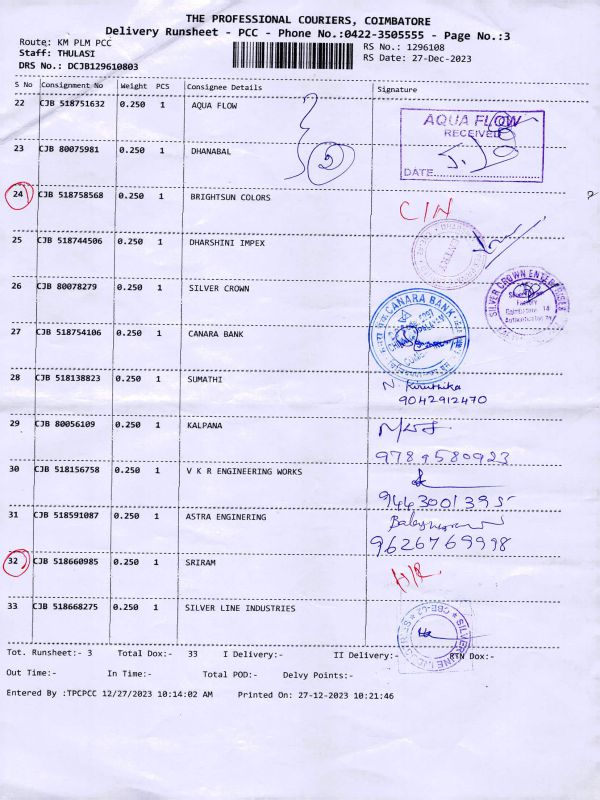 THE PROFESSIONAL COURIERS, COIMBATORE
Delivery Runsheet - PCC - Phone No.:0422-3505555 - Page No.:3
Route: KM PLM PCC
RS No.: 1296108
Staff: THULASI
RS Date: 27-Dec-2023
DRS No.: DCJB129610803
S No Consignment No Weight PCS Consignee Details Signature
22 CJB 518751632 0.250 1 AQUA FLOW
AQUA FLOW
RECEIVED
DATE
23 CJB 80075981 0.250 1 DHANABAL
2
24 CJB 518758568 0.250 1 BRIGHTSUN COLORS
C/N
25 CJB 518744506 0.250 1 DHARSHINI IMPEX
26 CJB 80078279 0.250 1 SILVER CROWN
SILVER CROWN ENTERPRISES
27 CJB 518754106 0.250 1 CANARA BANK
CANARA BANK
28 CJB 518138823 0.250 1 SUMATHI
N. Kiruthika
9042912470
29 CJB 80056109 0.250 1 KALPANA
9789580923
30 CJB 518156758 0.250 1 V K R ENGINEERING WORKS
9443001395
31 CJB 518591087 0.250 1 ASTRA ENGINERING
9626769998
32 CJB 518660985 0.250 1 SRIRAM
33 CJB 518668275 0.250 1 SILVER LINE INDUSTRIES
SILVER LINE INDUSTRIES
Tot. Runsheet:- 3 Total Dox:- 33 I Delivery:- II Delivery:- RTN Dox:-
Out Time:- In Time:- Total POD:- Delvy Points:-
Entered By :TPCPCC 12/27/2023 10:14:02 AM Printed On: 27-12-2023 10:21:46